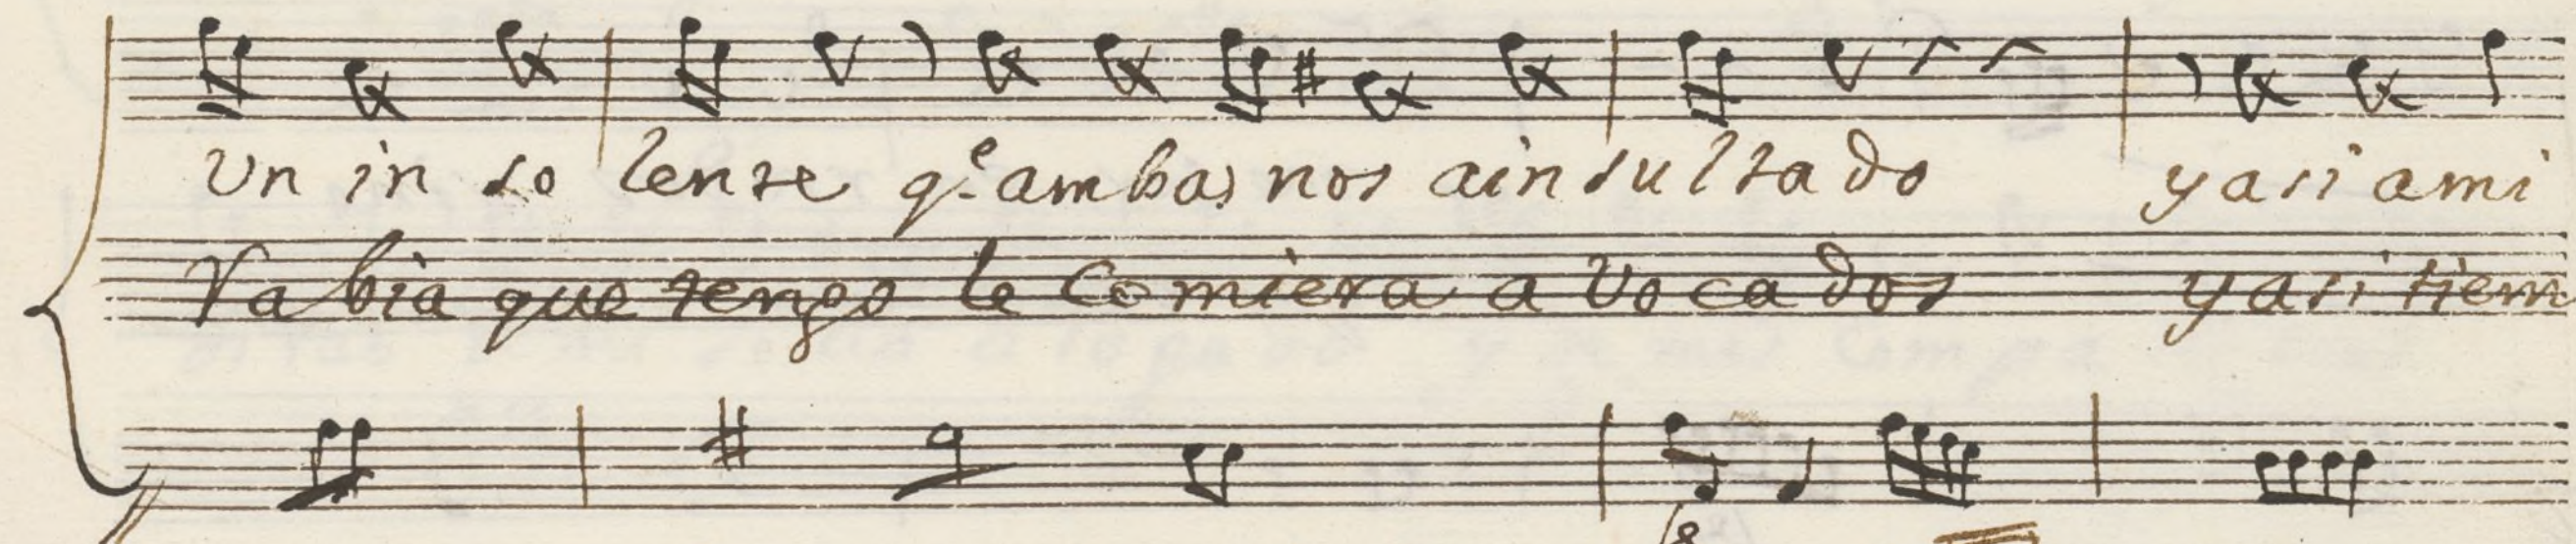 Un in so lente q.e ambas nos ain sul ta do y asi a mi
Rabia que tengo le Comiera a vo ca dos y asi tiem
8